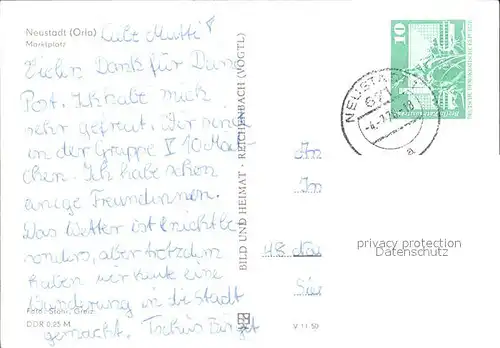 Neustadt (Orla)
Marktplatz
Liebe Mutti!
Vielen Dank für Deine
Post. Ich habe mich
sehr gefreut. Wir sind
in der Gruppe V 10 Mäd-
chen. Ich habe schon
einige Freundinnen.
Das Wetter ist nicht be-
sonders, aber trotzdem
haben wir heute eine
Wanderung in die Stadt
gemacht. Tschüs Birgit
Foto: Stahr, Greiz
DDR 0,05 M
BILD UND HEIMAT · REICHENBACH (VOGTL)
V 11 50
An
In
48
10
NEUSTADT
681
a
privacy protection
Datenschutz